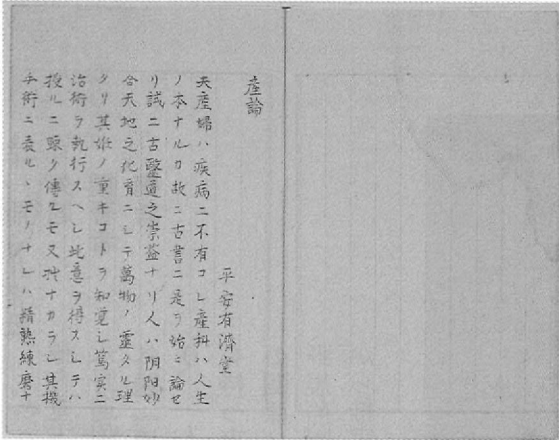 産論
平安有濟堂
夫産婦ハ疾病ニ不有コレ産科ハ人生
ノ本ナルカ故ニ古書ニ是ヲ始ニ論セ
リ誠ニ古醫道之崇益ナリ人ハ阴阳妙
合天地之化育ニシテ萬物ノ靈タル理
タリ其娠ノ重キコトヲ知覚シ篤実ニ
治術ヲ執行スヘシ此意ヲ得スシテハ
授ルニ頼ク傳ルモ又拙ナカラン其機
手術ニ表ル丶モノナレハ精熟練磨ナ